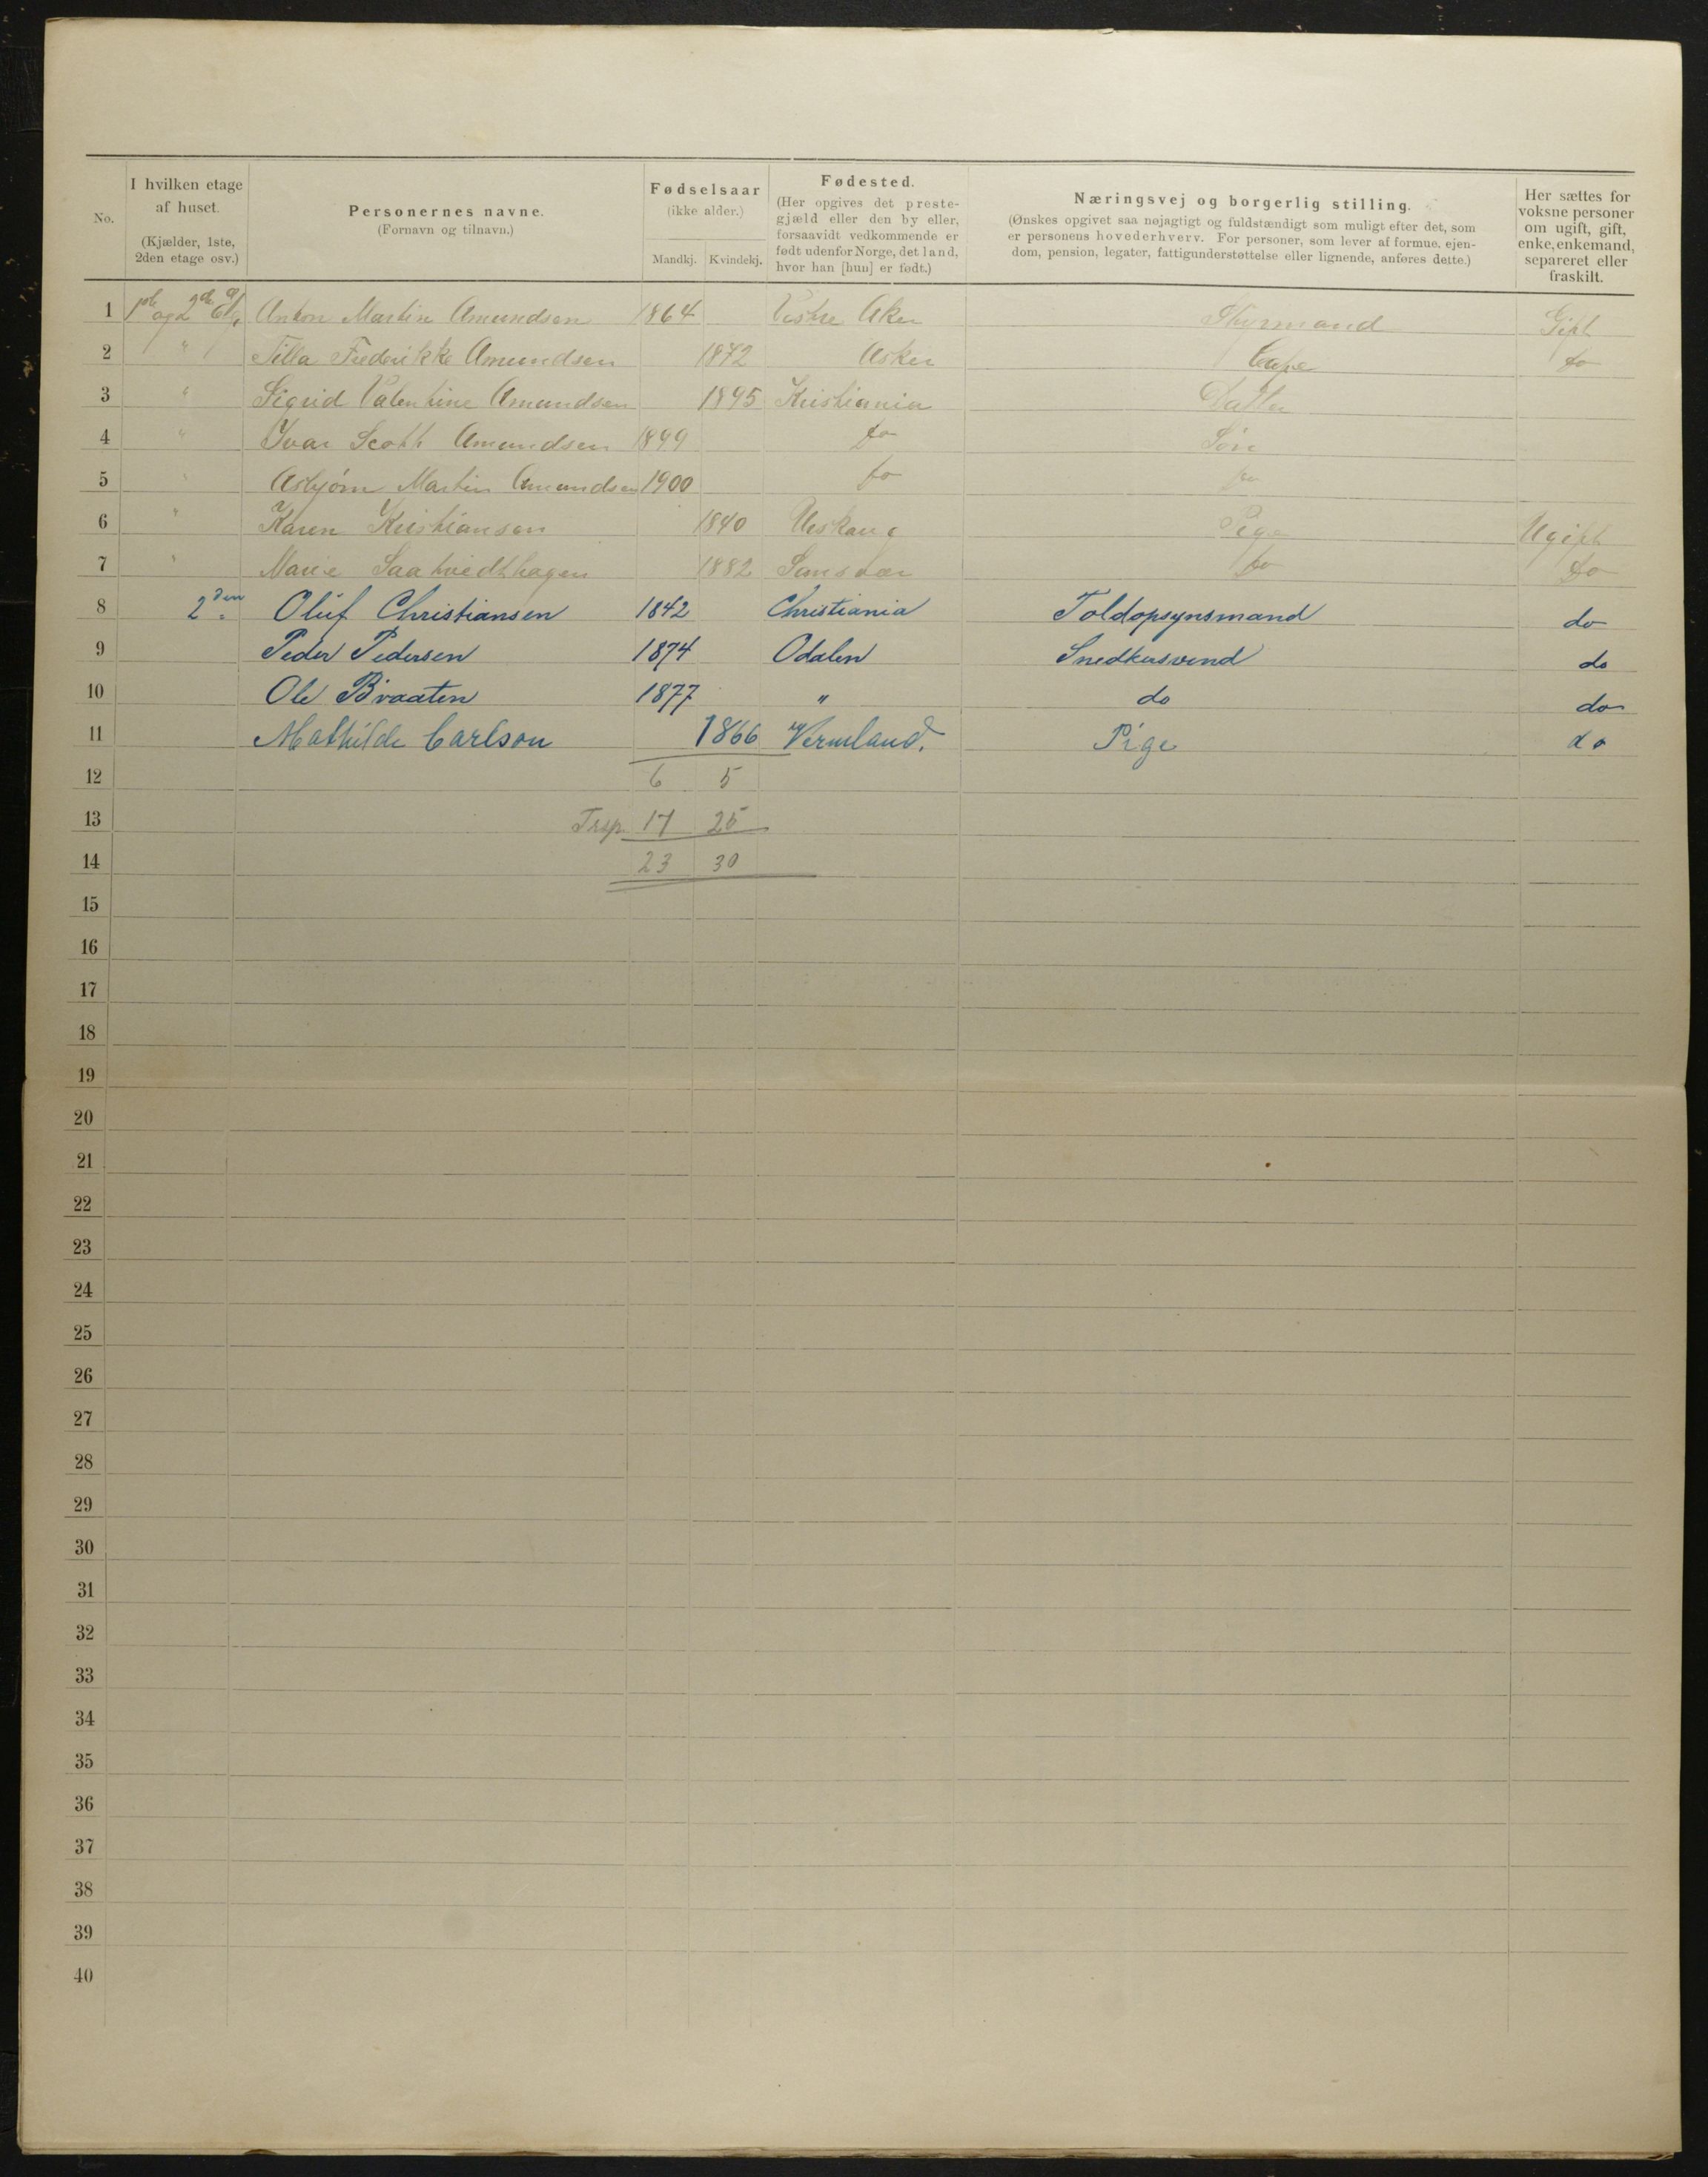 No.
I hvilken etage af huset. (Kjælder, 1ste, 2den etage osv.)
Personernes navne. (Fornavn og tilnavn.)
Fødselsaar (ikke alder.) Mandkj. Kvindekj.
Fødested. (Her opgives det prestegjæld eller den by eller, forsaavidt vedkommende er født udenfor Norge, det land, hvor han [hun] er født.)
Næringsvej og borgerlig stilling. (Ønskes opgivet saa nøjagtigt og fuldstændigt som muligt efter det, som er personens hovederhverv. For personer, som lever af formue, ejendom, pension, legater, fattigunderstøttelse eller lignende, anføres dette.)
Her sættes for voksne personer om ugift, gift, enke, enkemand, separeret eller fraskilt.
1 og 2 Etg. Anton Martin Amundsen 1864 Vestre Aker Styrmand Gift
2 " Tilla Frederikke Amundsen 1872 Asker do
3 " Sigrid Valentine Amundsen 1895 Kristiania Datter
4 " Ivar Scoth Amundsen 1899 do Søn
5 " Asbjørn Martin Amundsen 1900 do do
6 " Karen Kristiansen 1840 Pige Ugift
7 " Marie 1882 do do
8 2den Oluf Christiansen 1842 Christiania Toldopsynsmand do
9 Peder Pedersen 1874 Odalen Snedkersvend do
10 Ole Braaten 1877 " do do
11 Mathilde Carlson 1866 Vermland. Pige do
12 6 5
13 Trsp. 17 25
14 23 30
15
16
17
18
19
20
21
22
23
24
25
26
27
28
29
30
31
32
33
34
35
36
37
38
39
40